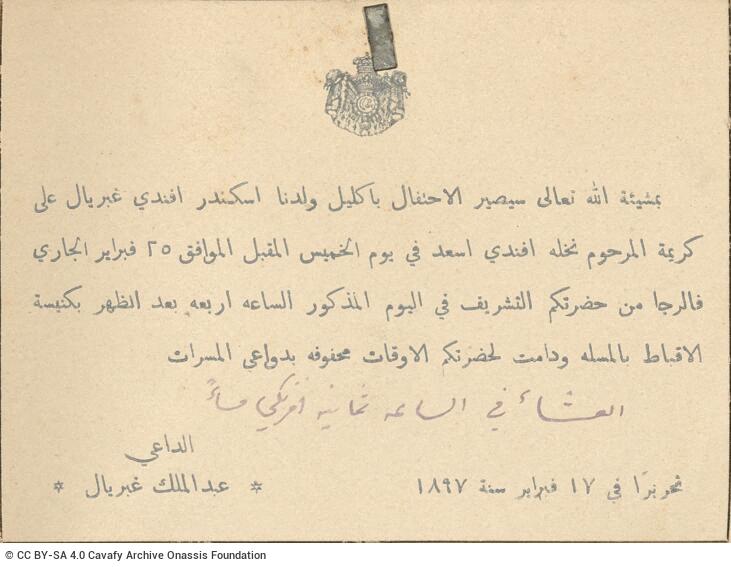 بمشيئة الله تعالى سيصير الاحتفال باكليل ولدنا اسكندر افندي غبريال على
كريمة المرحوم نخله افندي اسعد في يوم الخميس المقبل الموافق ٢٥ فبراير الجاري
فالرجا من حضرتكم التشريف في اليوم المذكور الساعه اربعه بعد الظهر بكنيسة
الاقباط بالمسله ودامت لحضرتكم الاوقات محفوفه بدواعى المسرات
العشاء في الساعه ثمانيه افرنكي مساءً
الداعي
تحريرًا في ١٧ فبراير سنة ١٨٩٧ * عبدالملك غبريال *
© CC BY-SA 4.0 Cavafy Archive Onassis Foundation